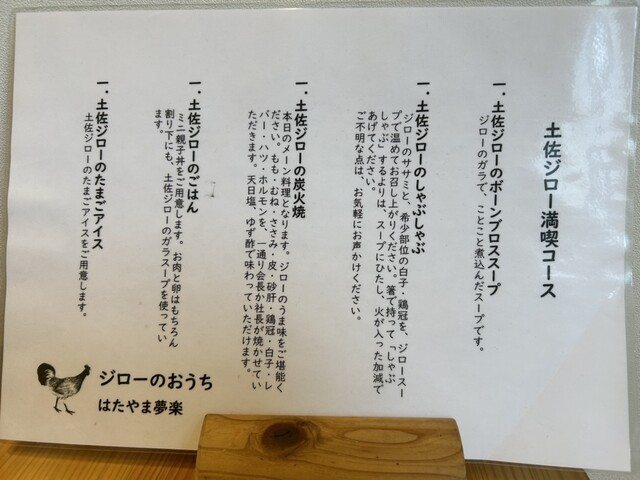 土佐ジロー満喫コース
一．土佐ジローのボーンブロススープ
ジローのガラで、ことこと煮込んだスープです。
一．土佐ジローのしゃぶしゃぶ
ジローのササミと、希少部位の白子・鶏冠を、ジロースー
プで温めてお召し上がりください。箸で持って「しゃぶ
しゃぶ」するよりは、スープにひたし、火が入った加減で
あげてください。
ご不明な点は、お気軽にお声かけください。
一．土佐ジローの炭火焼
本日のメーン料理となります。ジローのうま味をご堪能く
ださい。もも・むね・ささみ・皮・砂肝・鶏冠・白子・レ
バー・ハツ・ホルモンを、一通り会長か社長が焼かせてい
ただきます。天日塩、ゆず酢で味わっていただけます。
一．土佐ジローのごはん
ミニ親子丼をご用意します。お肉と卵はもちろん
割り下にも、土佐ジローのガラスープを使ってい
ます。
一．土佐ジローのたまごアイス
土佐ジローのたまごアイスをご用意します。
ジローのおうち
はたやま夢楽